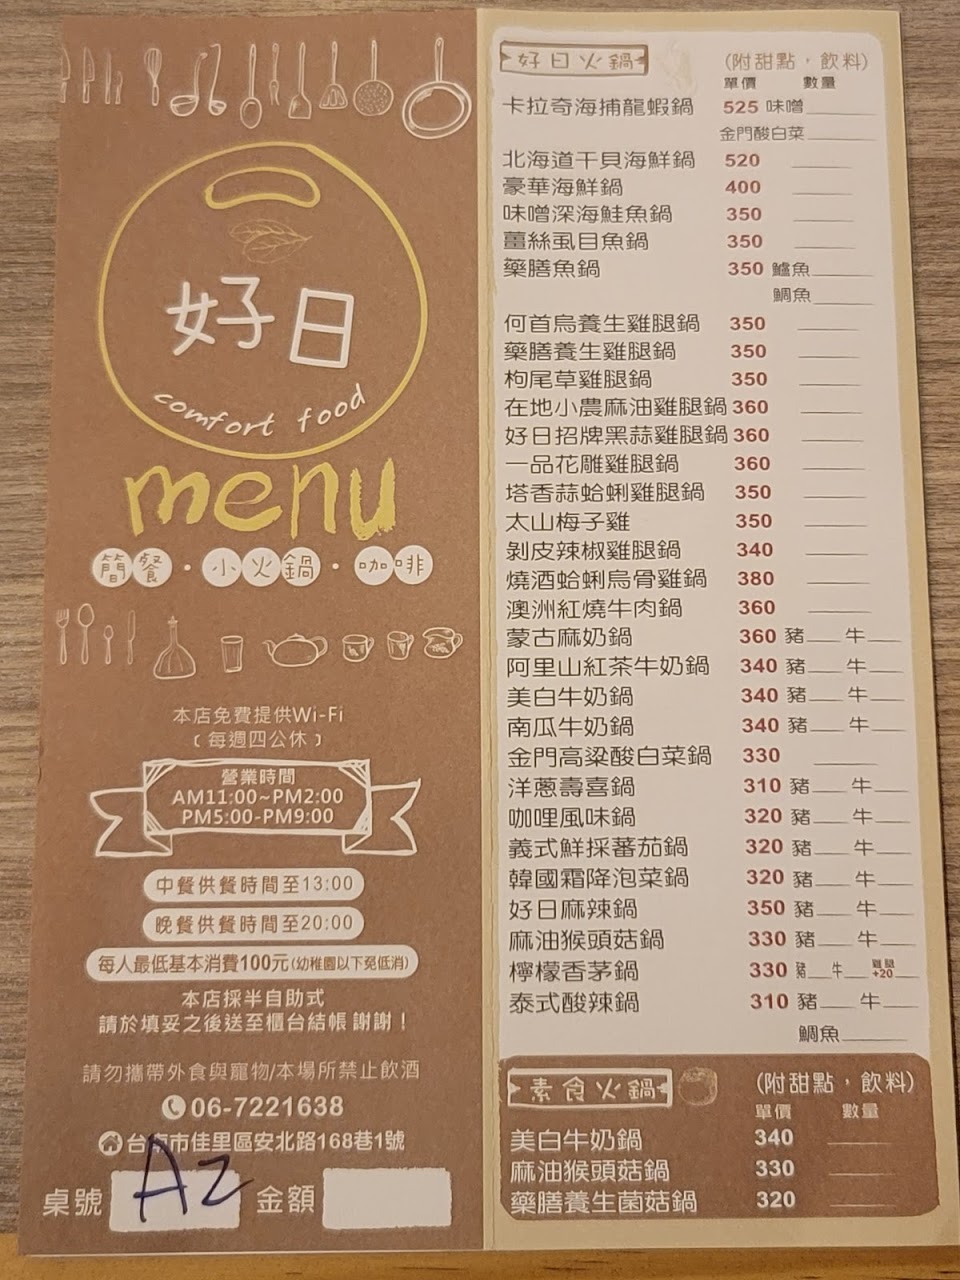 好日
comfort food
menu
簡餐・小火鍋・咖啡
本店免費提供Wi-Fi
(每週四公休)
營業時間
AM11:00~PM2:00
PM5:00-PM9:00
中餐供餐時間至13:00
晚餐供餐時間至20:00
每人最低基本消費100元(幼稚園以下免低消)
本店採半自助式
請於填妥之後送至櫃台結帳 謝謝！
請勿攜帶外食與寵物/本場所禁止飲酒
06-7221638
台南市佳里區安北路168巷1號
桌號 A2 金額
好日火鍋 (附甜點，飲料)
單價 數量
卡拉奇海捕龍蝦鍋 525 味噌
金門酸白菜
北海道干貝海鮮鍋 520
豪華海鮮鍋 400
味噌深海鮭魚鍋 350
薑絲虱目魚鍋 350
藥膳魚鍋 350 鱸魚
鯛魚
何首烏養生雞腿鍋 350
藥膳養生雞腿鍋 350
枸尾草雞腿鍋 350
在地小農麻油雞腿鍋 360
好日招牌黑蒜雞腿鍋 360
一品花雕雞腿鍋 360
塔香蒜蛤蜊雞腿鍋 350
太山梅子雞 350
剝皮辣椒雞腿鍋 340
燒酒蛤蜊烏骨雞鍋 380
澳洲紅燒牛肉鍋 360
蒙古麻奶鍋 360 豬 牛
阿里山紅茶牛奶鍋 340 豬 牛
美白牛奶鍋 340 豬 牛
南瓜牛奶鍋 340 豬 牛
金門高粱酸白菜鍋 330
洋蔥壽喜鍋 310 豬 牛
咖哩風味鍋 320 豬 牛
義式鮮採蕃茄鍋 320 豬 牛
韓國霜降泡菜鍋 320 豬 牛
好日麻辣鍋 350 豬 牛
麻油猴頭菇鍋 330 豬 牛
檸檬香茅鍋 330 豬 牛 雞腿+20
泰式酸辣鍋 310 豬 牛
鯛魚
素食火鍋 (附甜點，飲料)
單價 數量
美白牛奶鍋 340
麻油猴頭菇鍋 330
藥膳養生菌菇鍋 320